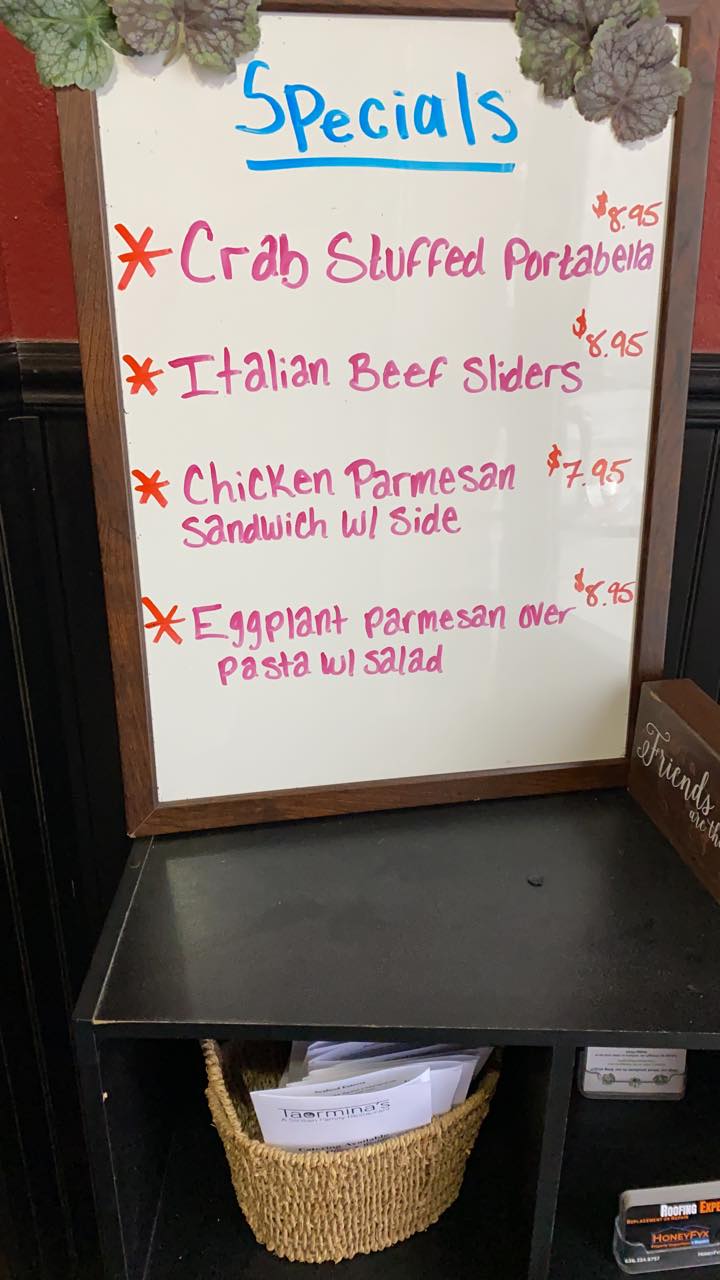 Specials
$8.95
* Crab Stuffed Portabella
$8.95
* Italian Beef Sliders
* Chicken Parmesan $7.95
Sandwich w/ Side
$8.95
* Eggplant Parmesan over
pasta w/ salad
Friends
are the
Taormina's
A Sicilian Family Restaurant
Catering Available
Roofing Expe
Replacement or Repair
HoneyFyx